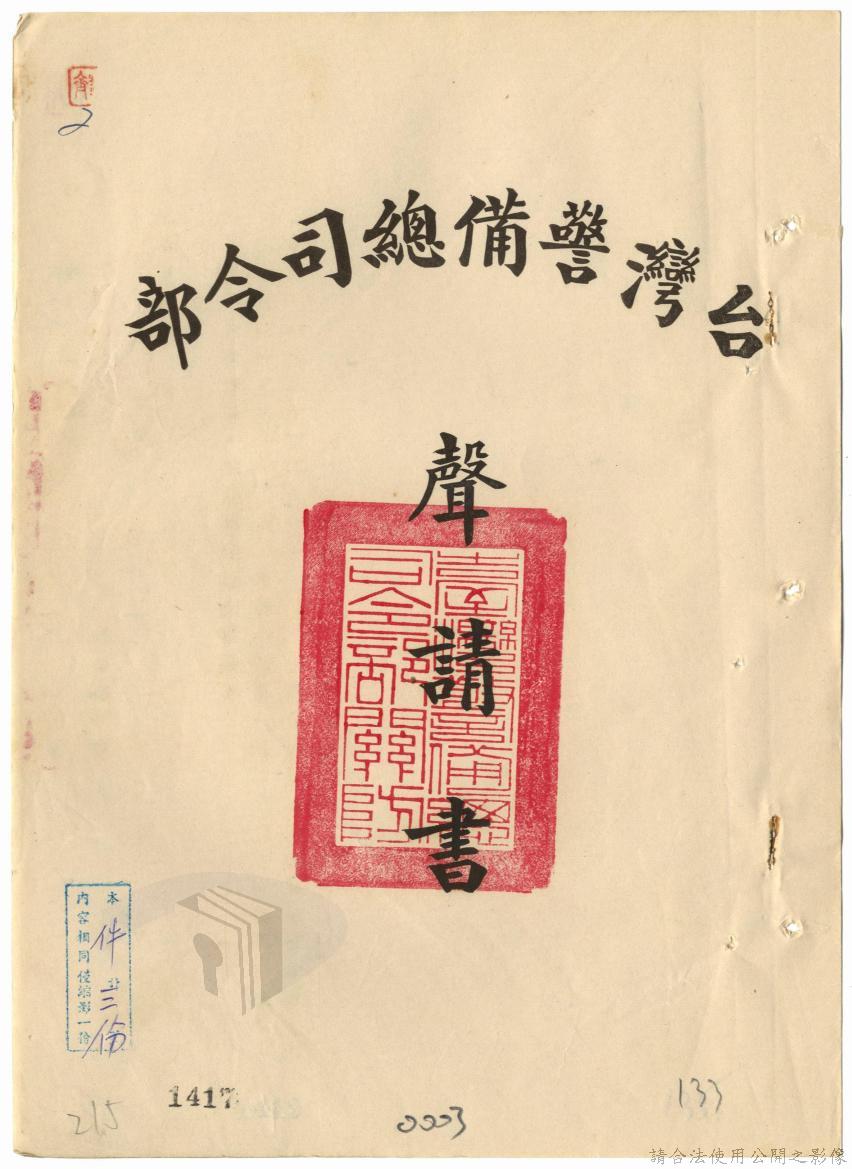 2
台灣警備總司令部
聲請書
臺灣警備總
司令部關防
本件計三份
內容相同僅縮影一份
215
1417
0003
133
請合法使用公開之影像